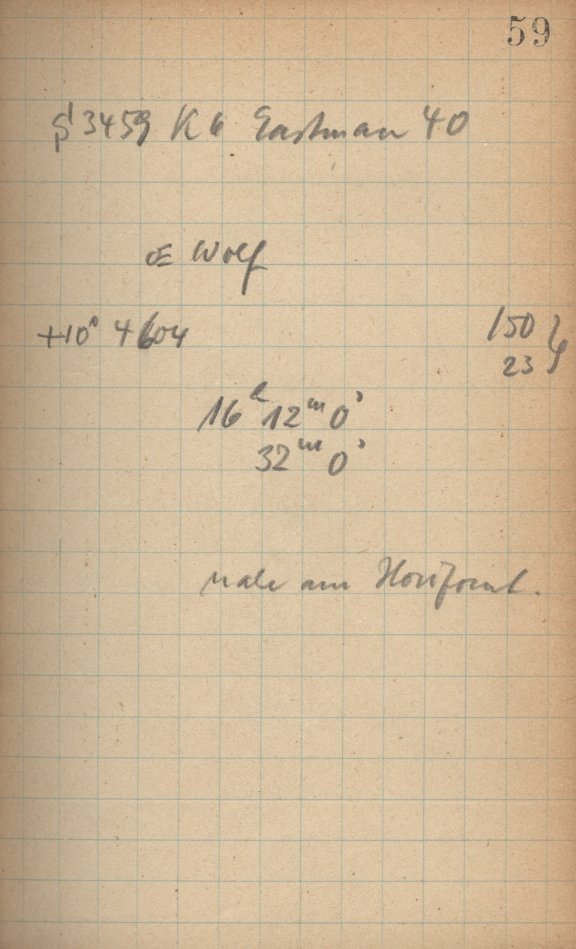 59
3459 K6 Eastman 40
Œ Wolf
+10° 4604
150
23
16h 12m 0s
32m 0s
nahe am Horizont.